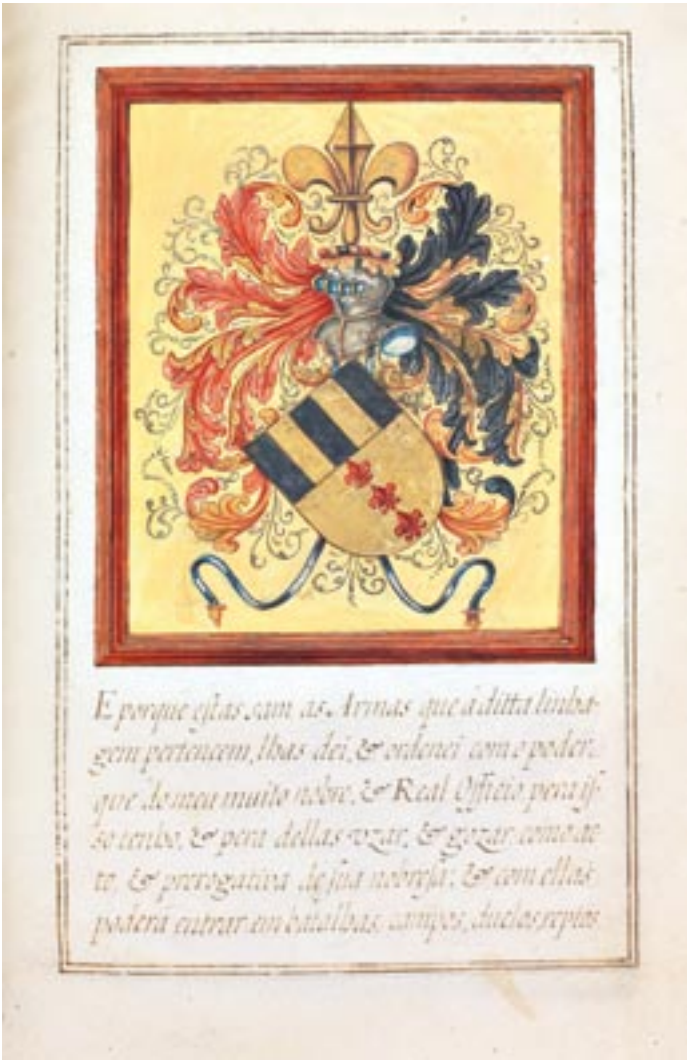 E porque estas sam as Armas que à ditta linha-
gem pertencem, lhas dei, & ordenei com o poder,
que do meu muito nobre, & Real Officio pera is-
so tenho, & pera dellas vzar, & gozar, como ac-
to, & prerogativa de sua nobresa; & com ellas
poderá entrar em batalhas, campos, duelos, reptos